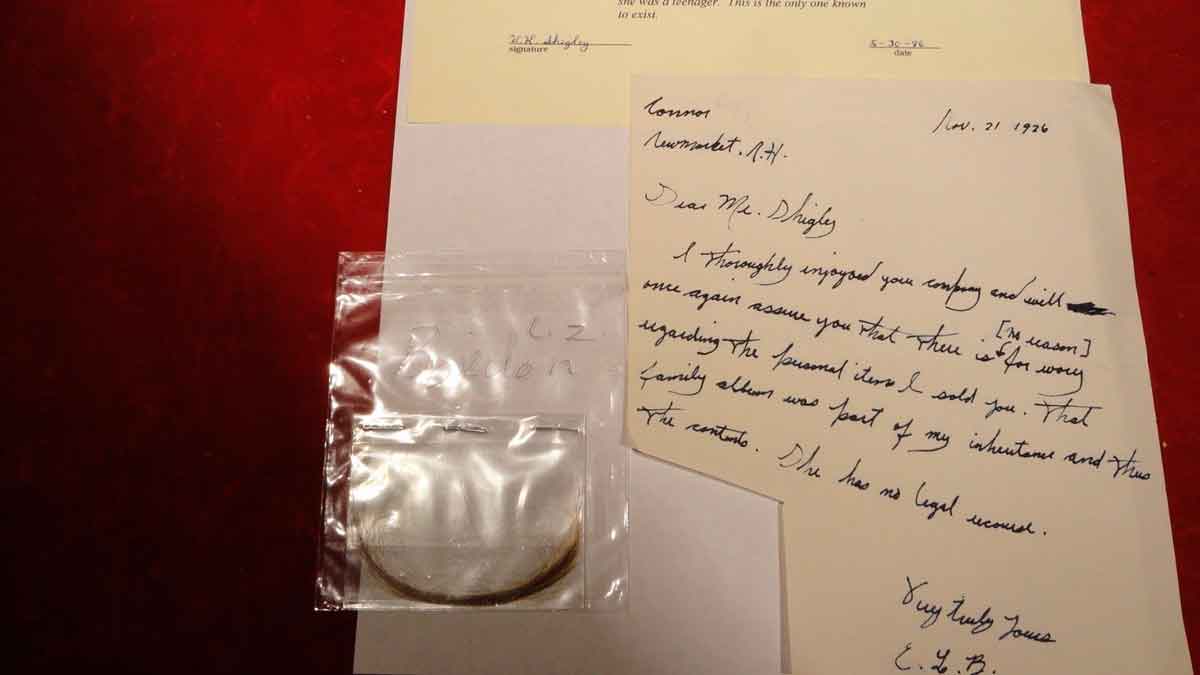 she was a teenager. This is the only one known
to exist.
W.H. Shigley
signature
5-30-86
date
Connor
Nov. 21 1926
Newmarket. N.H.
Dear Mr. Shigley
I thoroughly injoyed your company and will
once again assure you that there is for worry
[no reason]
regarding the personal items I sold you. That
family album was part of my inheritance and thus
the contents. She has no legal recourse.
Very truly yours
E. L. B.
Liz